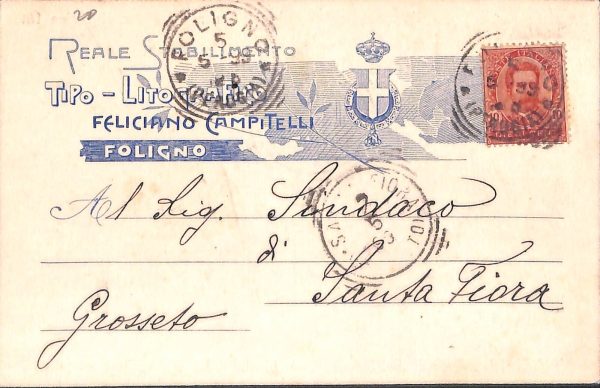 20
Reale Stabilimento
Tipo-Litografico
Feliciano Campitelli
FOLIGNO
FOLIGNO
5
5 99
(PERUGIA)
Al Sig. Sindaco
di
Santa Fiora
Grosseto